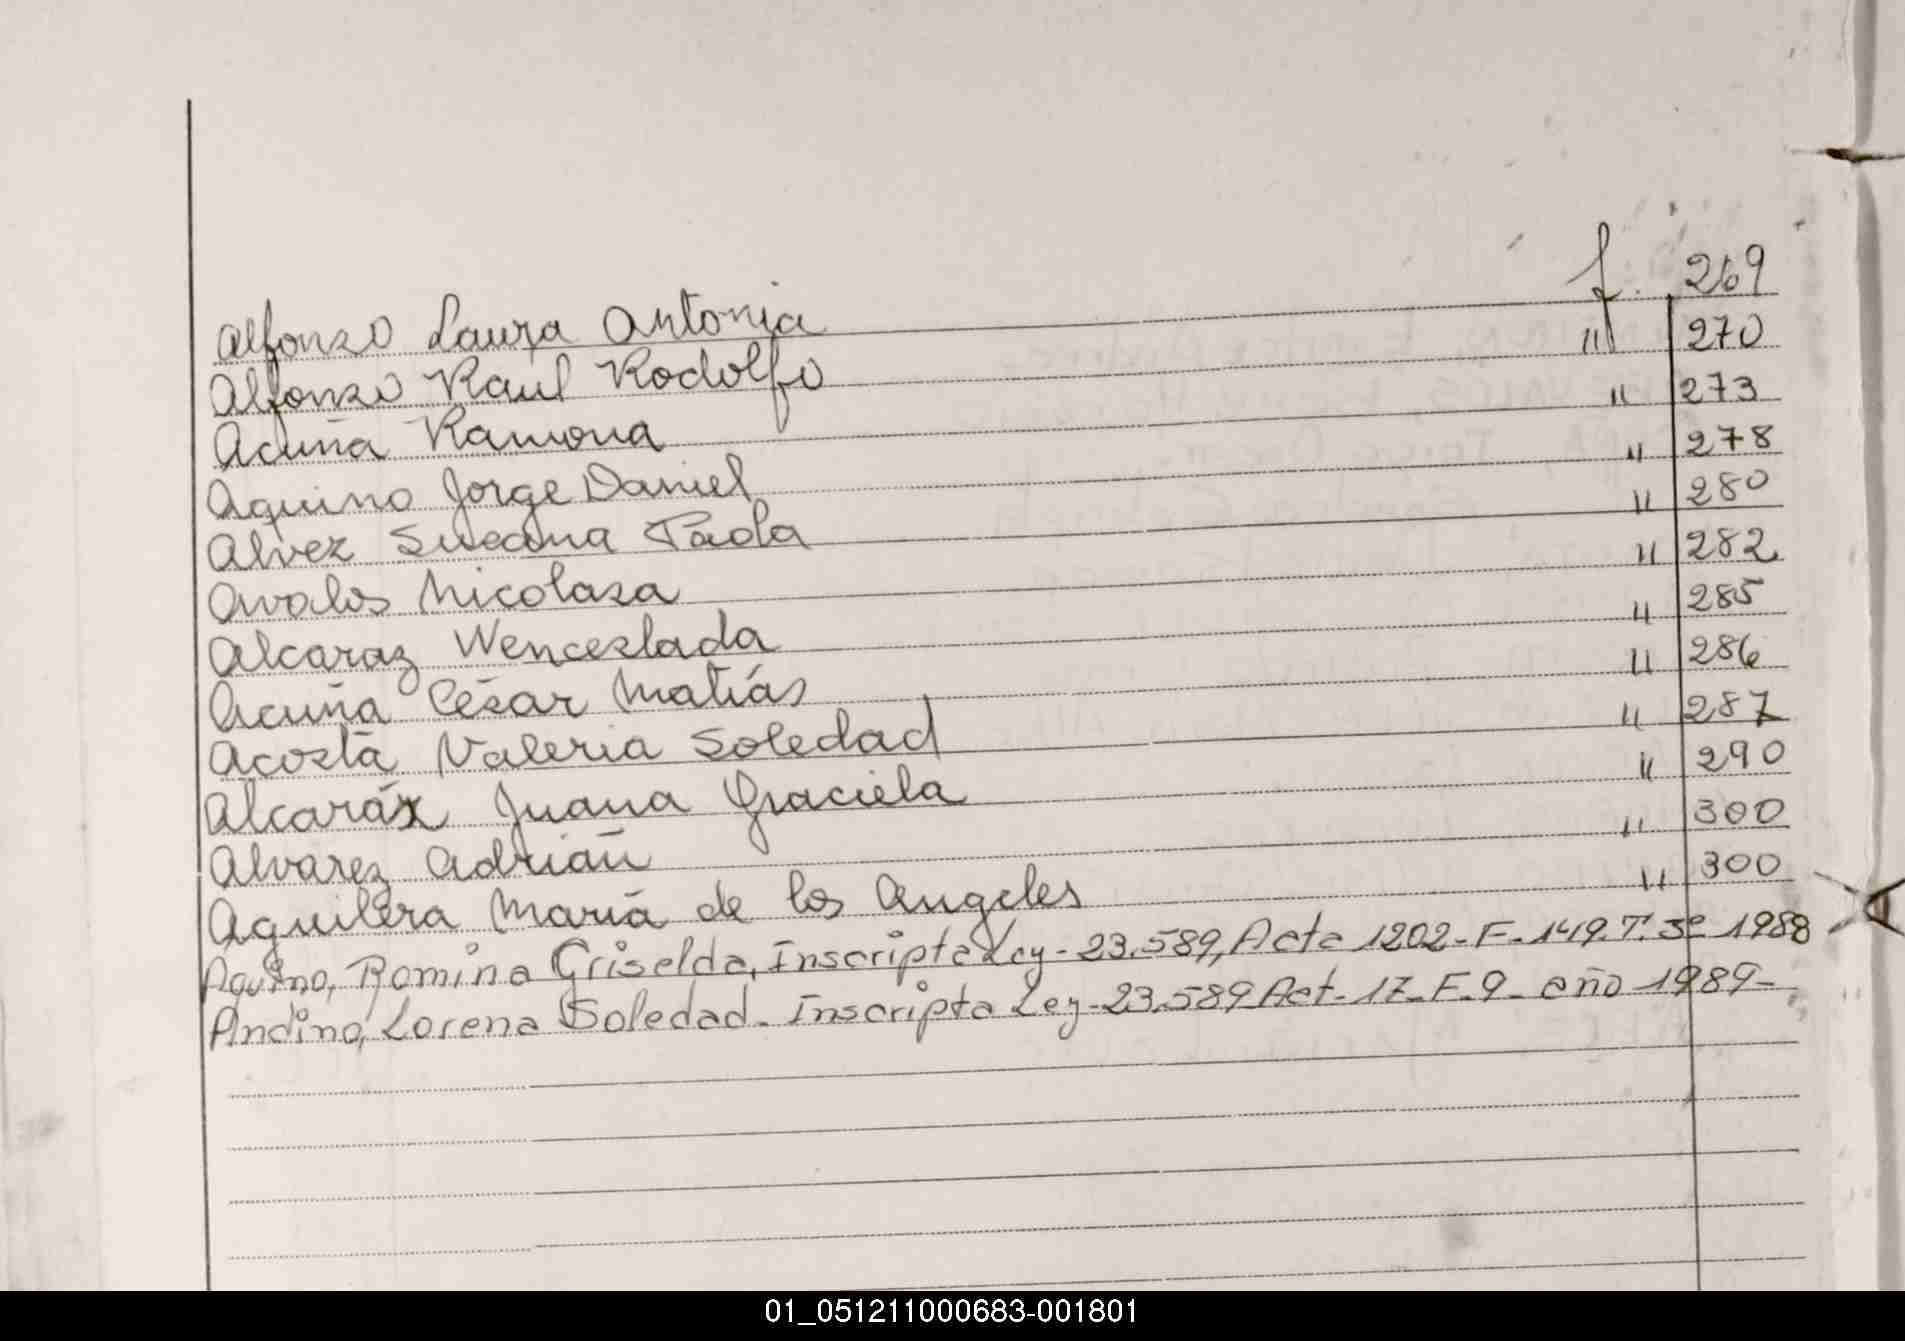 Alfonzo Laura Antonia f. 269
Alfonzo Raul Rodolfo " 270
Acuña Ramona " 273
Aquino Jorge Daniel " 278
Alvez Susana Paola " 280
Avalos Nicolasa " 282
Alcaraz Wenceslada " 285
Acuña César Matías " 286
Acosta Valeria Soledad " 287
Alcaráz Juana Graciela " 290
Alvarez Adrián " 300
Aguilera María de los Angeles " 300
Aquino, Romina Griselda, Inscripta Ley-23.589, Acta 1202-F-149.T.3º 1988
Andino, Lorena Soledad. Inscripta Ley-23.589 Act-17-F.9- año 1989-
01_051211000683-001801